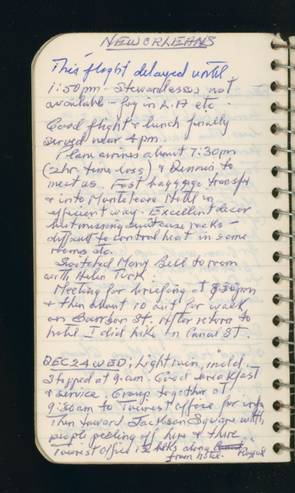 NEW ORLEANS
This flight delayed until
1:50pm - Stewardesses not
available - fog in L.A. etc.
Good flight & lunch finally
served near 4pm.
Plane arrives about 7:30pm
(2hr. time loss) & Dennis to
meet us. Fast baggage transfer
& into Monteleone Hotel in
efficient way. Excellent decor
but missing suitcase racks -
difficult to control heat in some
rooms etc.
Switched Mary Bell to room
with Helen Turk.
Meeting for briefing at 8:30pm
& then about 10 out for walk
on Bourbon St. After return to
hotel I did hike on Canal St.
DEC 24 WED; Light rain, mild.
Stepped at 9am. Good breakfast
& service. Group together at
9:30am to Tourist office for info
then toward Jackson Square with
people peeling off here & there.
Tourist office is blks along Royal
from hotel.